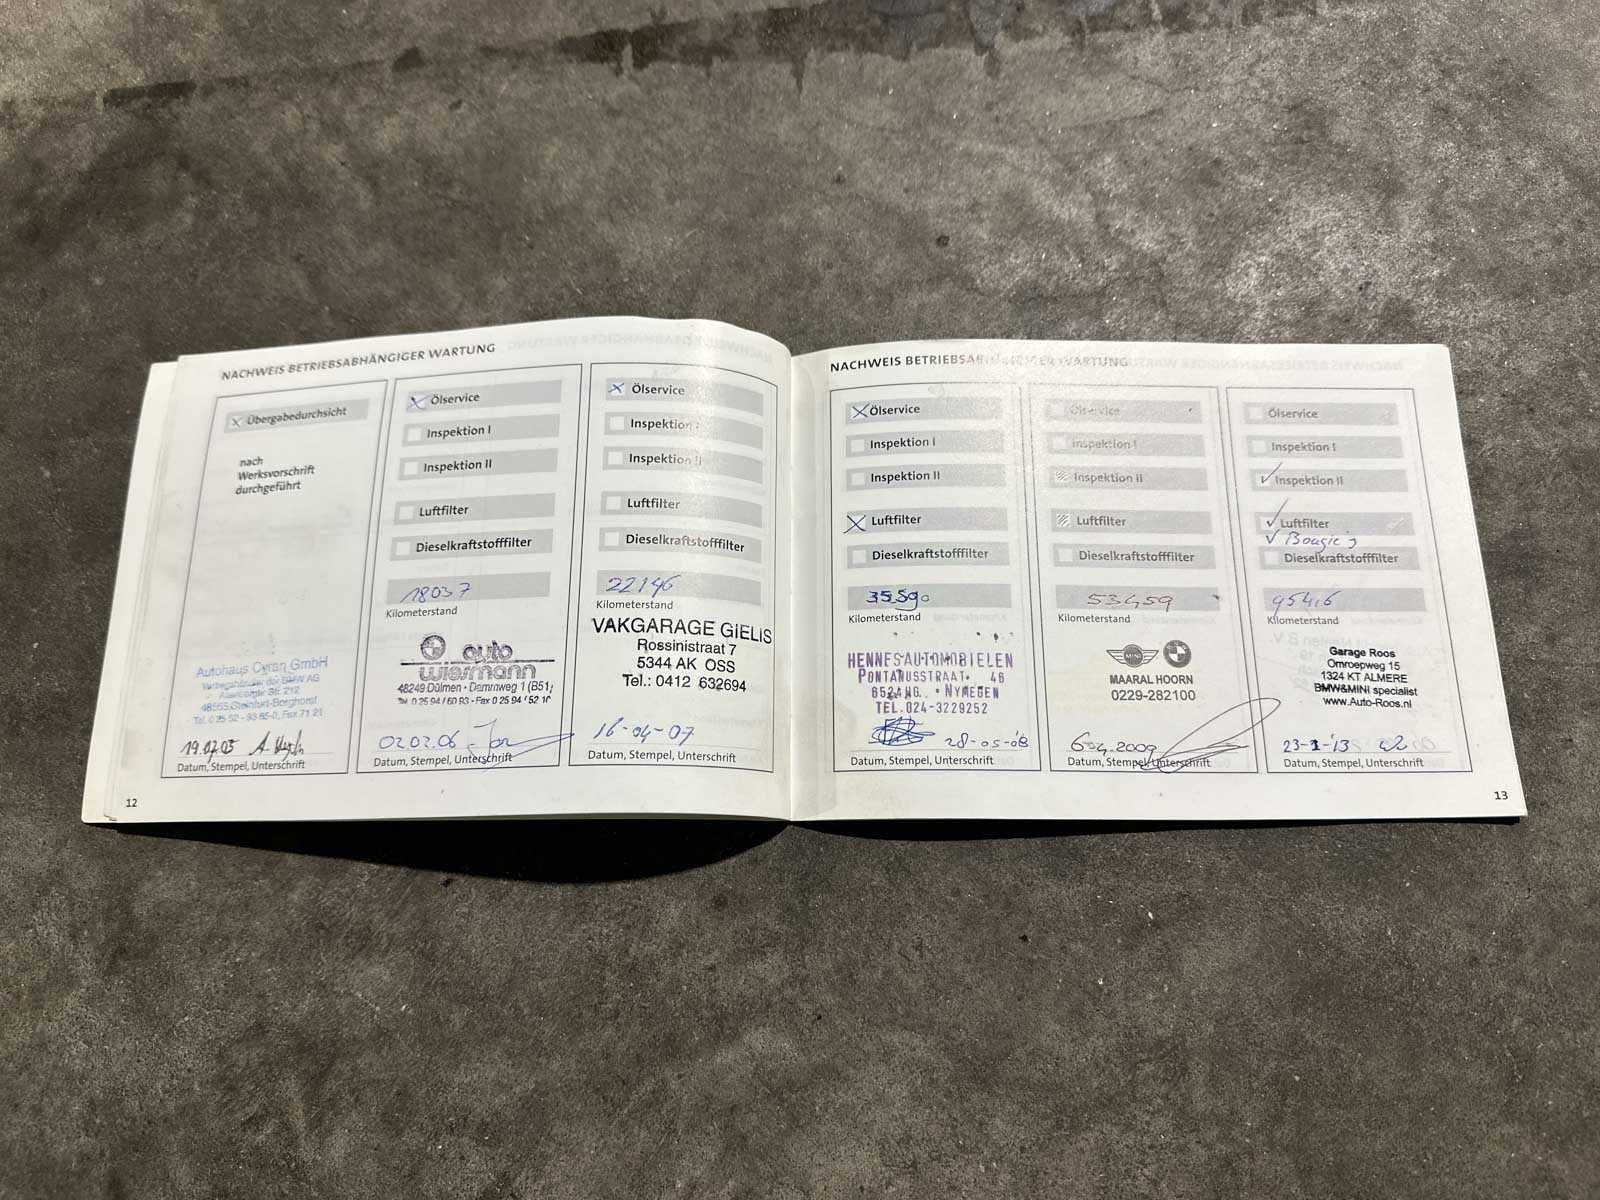 NACHWEIS BETRIEBSABHÄNGIGER WARTUNG
Übergabedurchsicht
nach
Werksvorschrift
durchgeführt
Autohaus
48565 Steinfurt-Borghorst
Datum, Stempel, Unterschrift
Ölservice
Inspektion I
Inspektion II
Luftfilter
Dieselkraftstofffilter
18037
Kilometerstand
auto
wiesmann
48249 Dülmen · Dammweg 1 (B51)
02.02.06
Datum, Stempel, Unterschrift
Ölservice
Inspektion I
Inspektion II
Luftfilter
Dieselkraftstofffilter
22146
Kilometerstand
VAKGARAGE GIELIS
Rossinistraat 7
5344 AK OSS
Tel.: 0412 632694
16-04-07
Datum, Stempel, Unterschrift
12
NACHWEIS BETRIEBSABHÄNGIGER WARTUNG
Ölservice
Inspektion I
Inspektion II
Luftfilter
Dieselkraftstofffilter
35590
Kilometerstand
HENNES AUTOMOBIELEN
46
TEL. 024-3229252
28-05-08
Datum, Stempel, Unterschrift
Ölservice
Inspektion I
Inspektion II
Luftfilter
Dieselkraftstofffilter
53459
Kilometerstand
MINI
MAARAL HOORN
0229-282100
Datum, Stempel, Unterschrift
Ölservice
Inspektion I
Inspektion II
Luftfilter
Bougie's
Dieselkraftstofffilter
95416
Kilometerstand
Garage Roos
Omroepweg 15
1324 KT ALMERE
BMW&MINI specialist
www.Auto-Roos.nl
23-1-'13
Datum, Stempel, Unterschrift
13